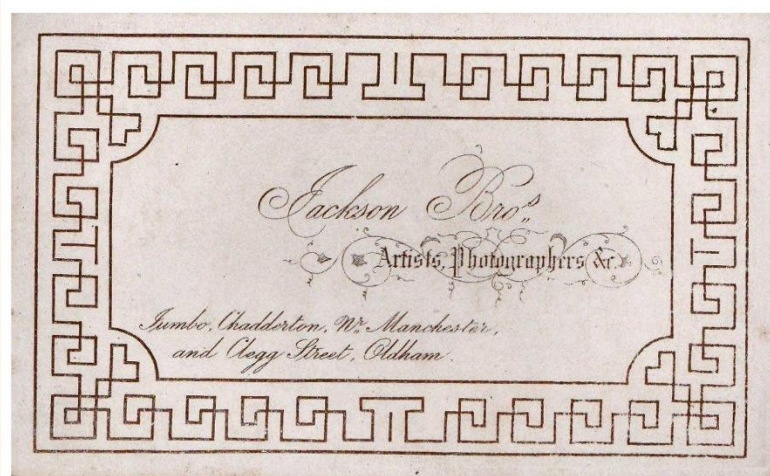 Jackson Bros.
Artists, Photographers &c.
Jumbo, Chadderton, Nr. Manchester,
and Clegg Street, Oldham.